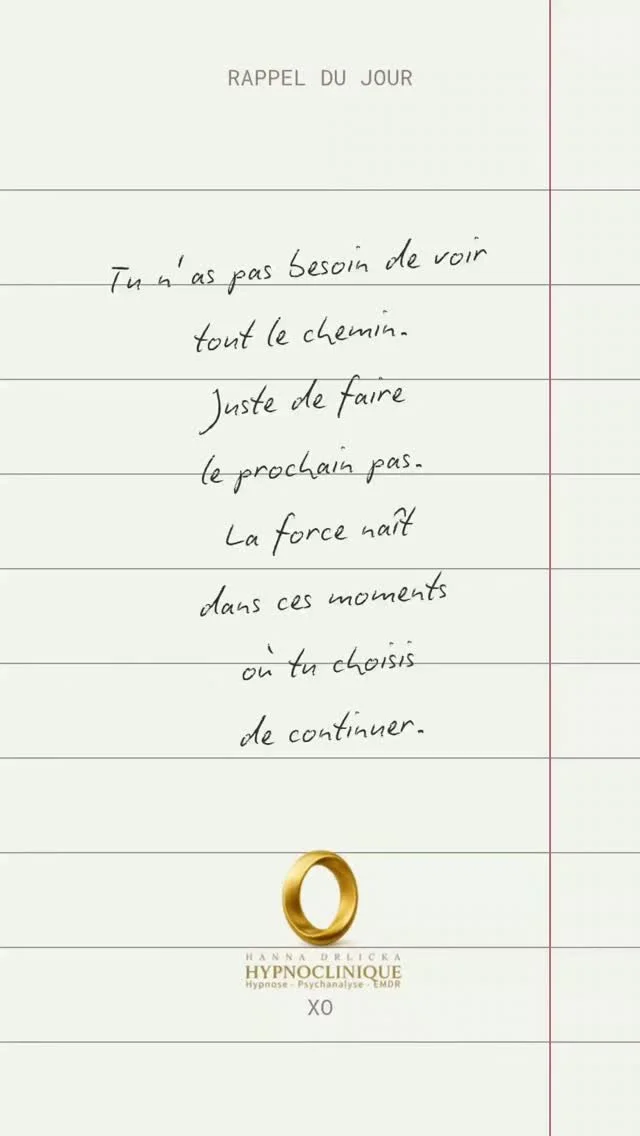 RAPPEL DU JOUR
Tu n'as pas besoin de voir
tout le chemin.
Juste de faire
le prochain pas.
La force naît
dans ces moments
où tu choisis
de continuer.
HANNA DRLICKA
HYPNOCLINIQUE
Hypnose - Psychanalyse - EMDR
XO